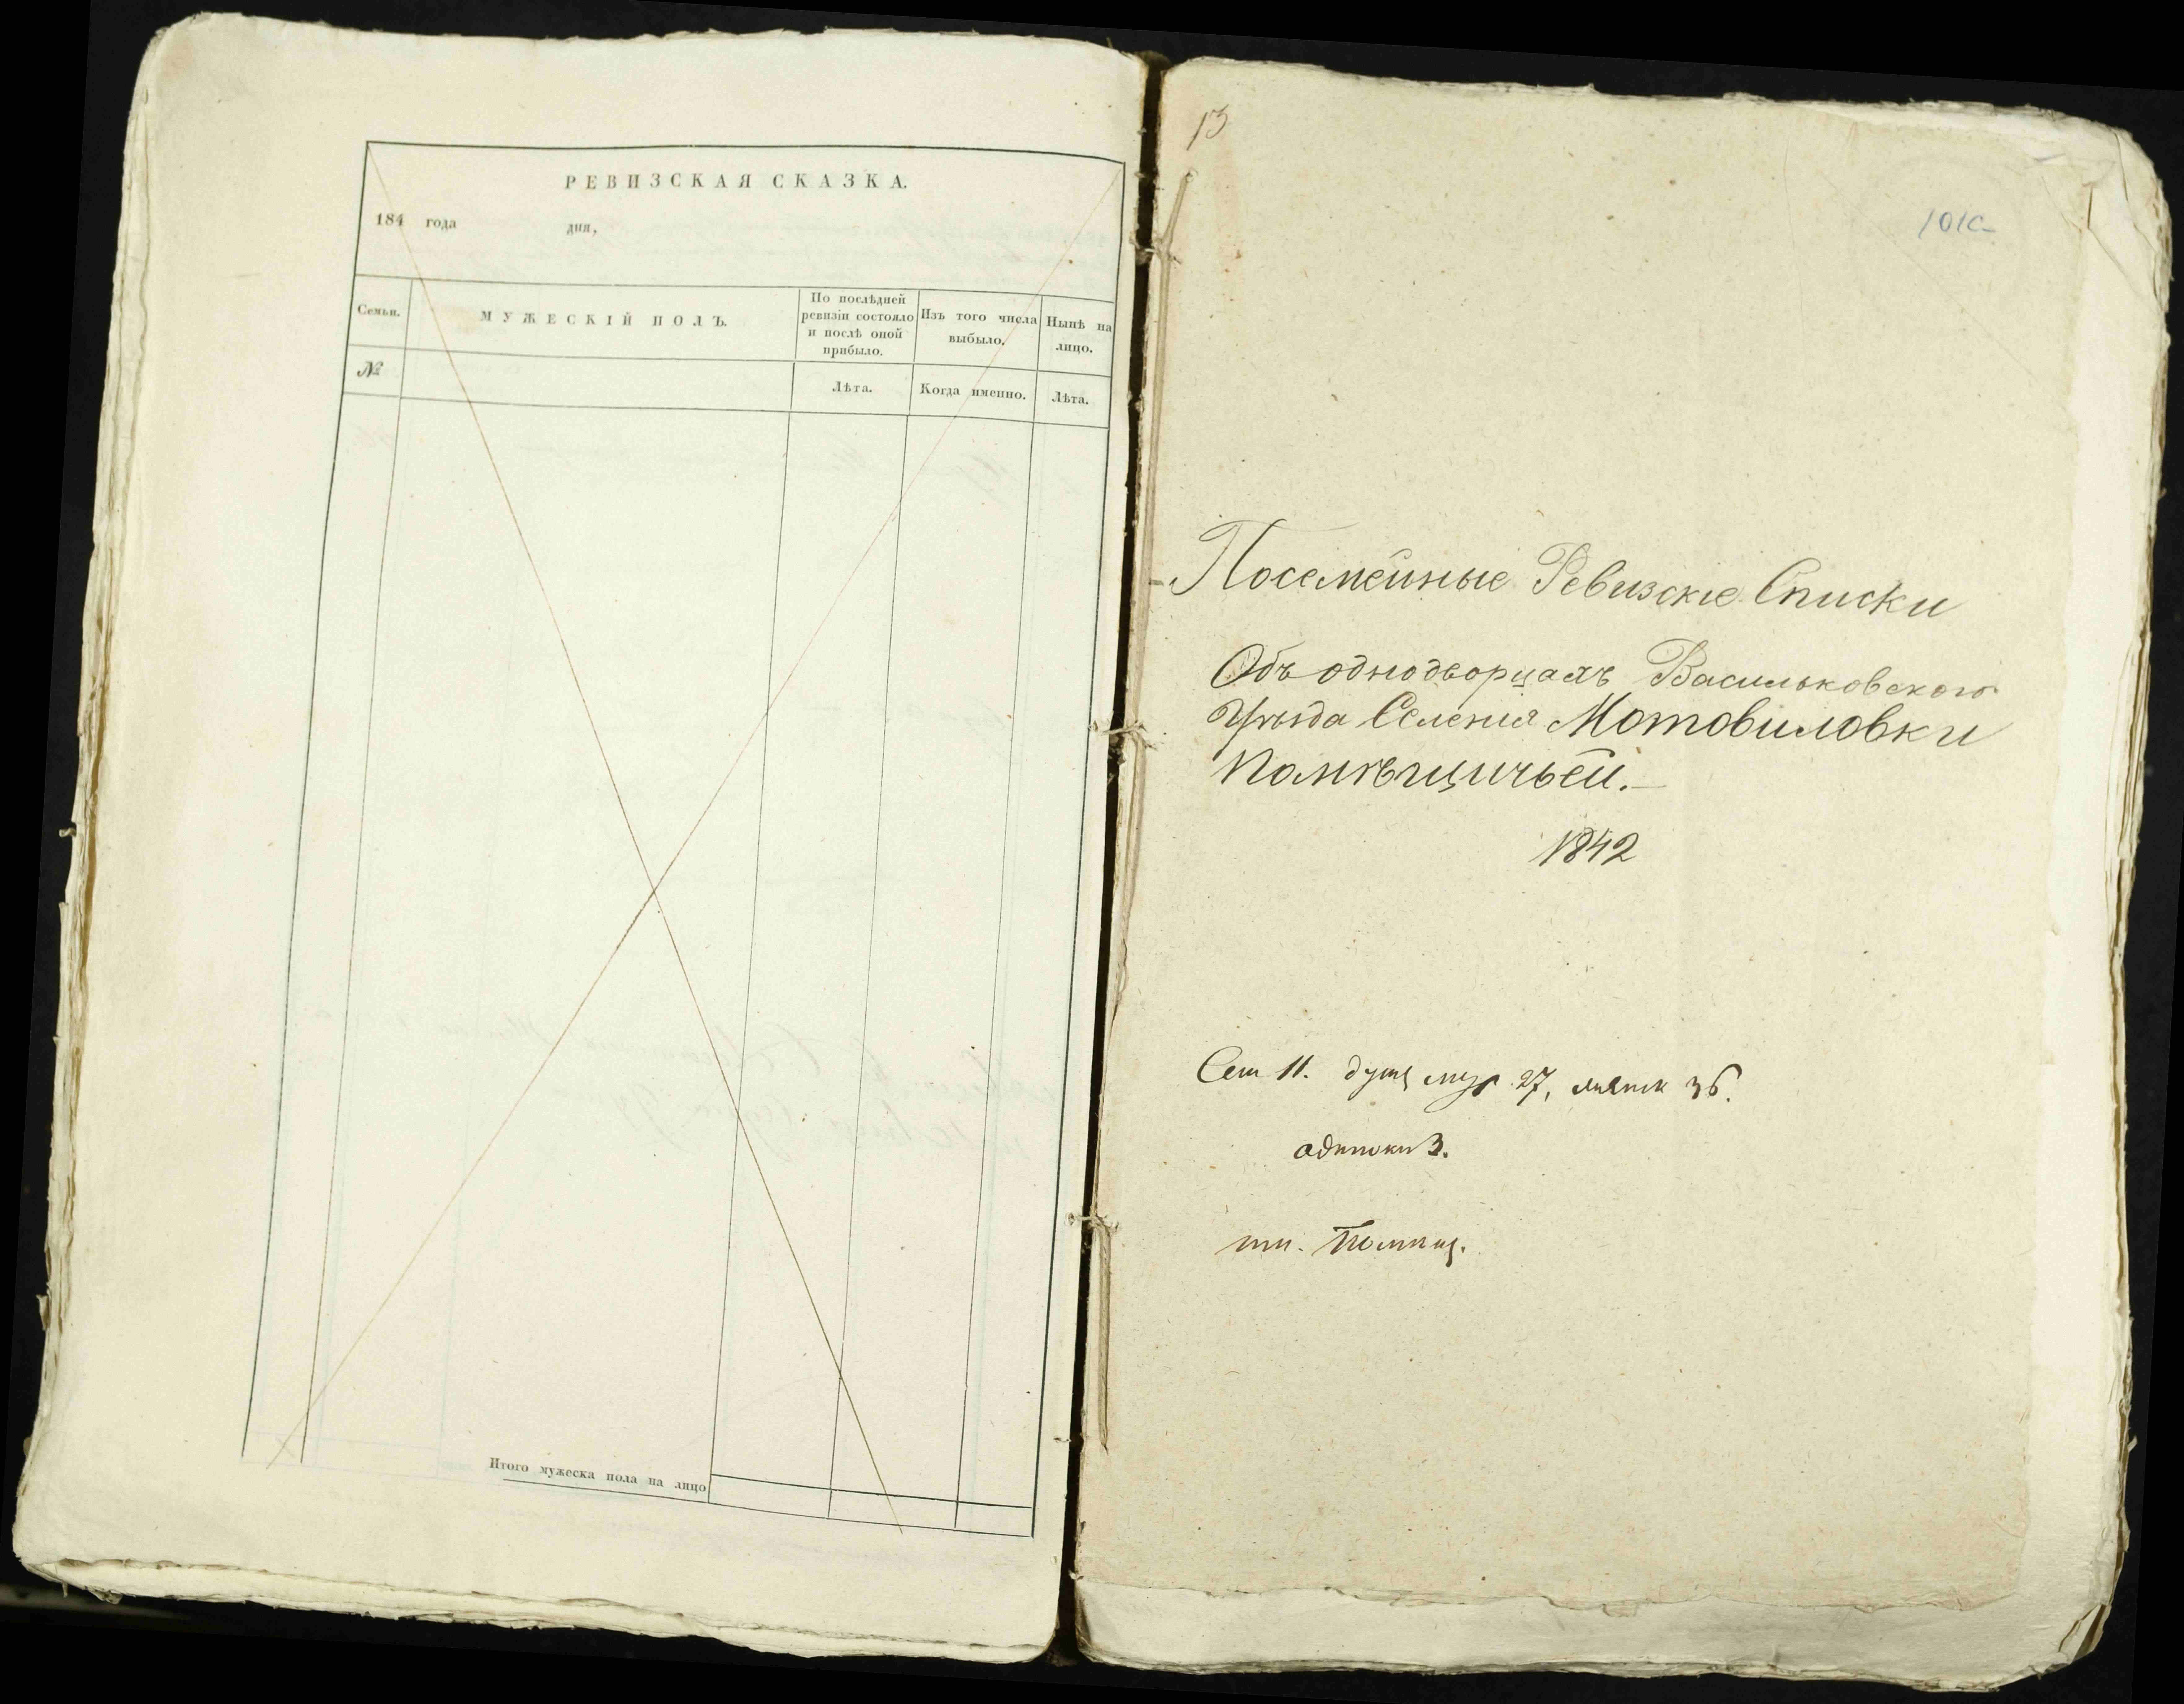 РЕВИЗСКАЯ СКАЗКА.
184 года дня,
Семьи.
МУЖЕСКІЙ ПОЛЪ.
По послѣдней
ревизіи состояло
и послѣ оной
прибыло.
Изъ того числа
выбыло.
Нынѣ на
лицо.
№
Лѣта.
Когда именно.
Лѣта.
Итого мужеска пола на лицо
13
Посемейные Ревизскіе Списки
Объ однодворцахъ Васильковскаго
Уѣзда Селенія Мотовиловки
Помѣщичьей.
1842
Сем 11. душъ муж 27, женск 36.
одиноки 3.